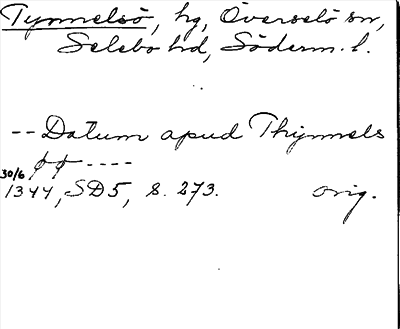 Tynnelsö, hg, Överselö sn,
Selebo hd, Söderm. l.
-- Datum apud Thijnnels
øø ----
30/6
1344, SD5, s. 273. orig.